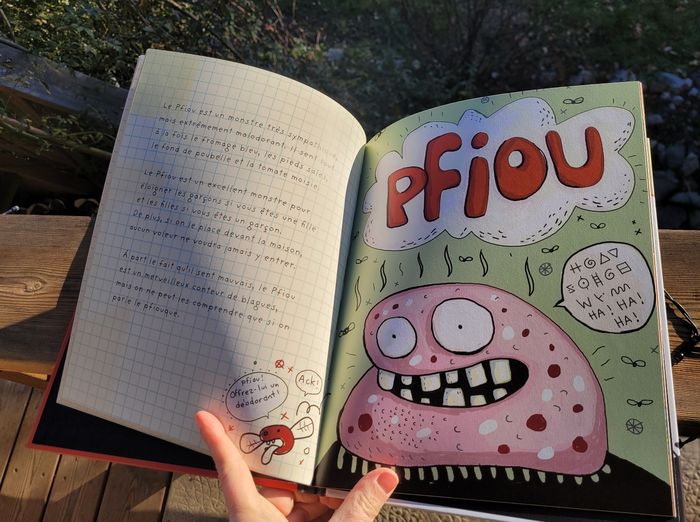 Le Pfiou est un monstre très sympathique,
mais extrêmement malodorant. Il sent tout
à la fois le fromage bleu, les pieds sales,
le fond de poubelle et la tomate moisie.
Le Pfiou est un excellent monstre pour
éloigner les garçons si vous êtes une fille
et les filles si vous êtes un garçon.
De plus, si on le place devant la maison,
aucun voleur ne voudra jamais y entrer.
À part le fait qu'il sent mauvais, le Pfiou
est un merveilleux conteur de blagues,
mais on ne peut les comprendre que si on
parle le pfiouque.
pfiou!
Offrez-lui un
déodorant!
Ack!
PFIOU
HA! HA!
HA!